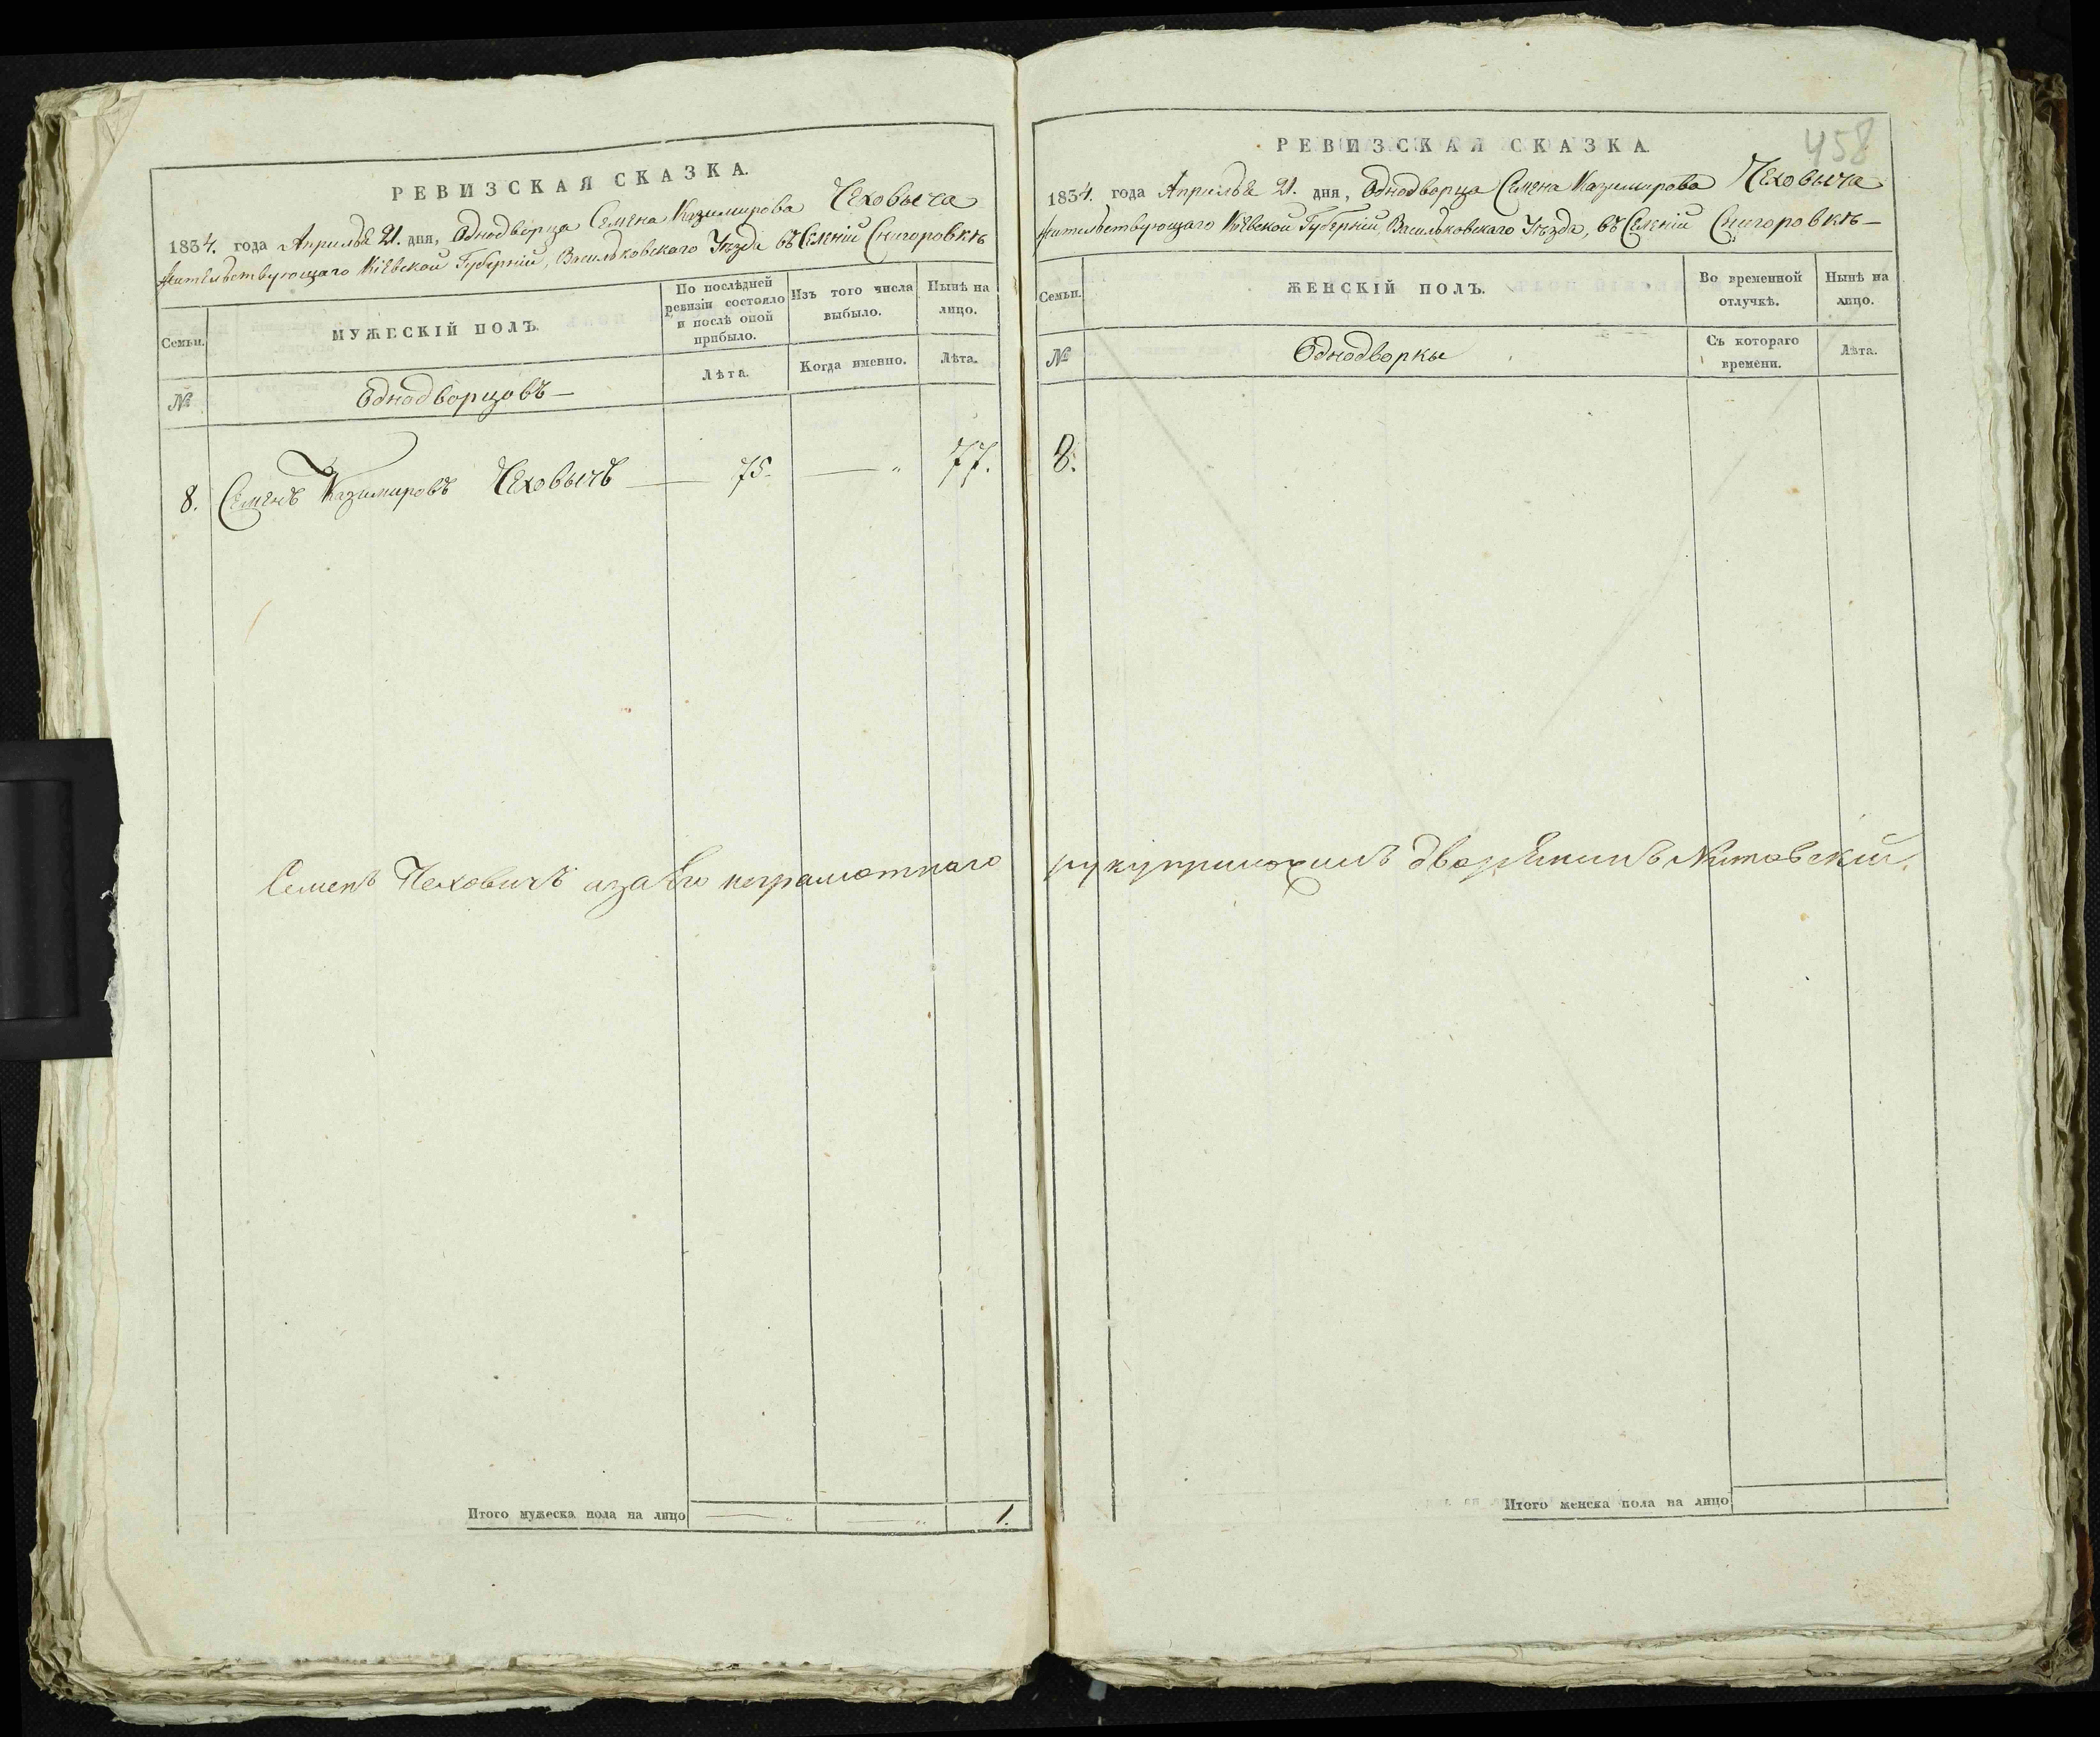 РЕВИЗСКАЯ СКАЗКА.
1834. года Апрѣля 21. дня, Однодворца Семена Казимирова Чеховыча
жительствующаго Кіевской Губерніи, Васильковскаго Уѣзда въ Селеніи Снигоровкѣ
Семьи.
МУЖЕСКІЙ ПОЛЪ.
По послѣдней
ревизіи состояло
и послѣ оной
прибыло.
Изъ того числа
выбыло.
Нынѣ на
лицо.
№
Однодворцовъ —
Лѣта.
Когда именно.
Лѣта.
8. Семенъ Казимировъ Чеховычъ — 75. — „ 77.
Семенъ Чеховичъ аза его неграмотнаго
Итого мужеска пола на лицо — „ — „ 1.
458
РЕВИЗСКАЯ СКАЗКА.
1834. года Апрѣля 21. дня, Однодворца Семена Казимирова Чеховыча
жительствующаго Кіевской Губерніи, Васильковскаго Уѣзда, въ Селеніи Снигоровкѣ —
Семьи.
ЖЕНСКІЙ ПОЛЪ.
Во временной
отлучкѣ.
Нынѣ на
лицо.
№
Однодворкы
Съ котораго
времени.
Лѣта.
8.
рукуприложилъ дворянинъ
Итого женска пола на лицо